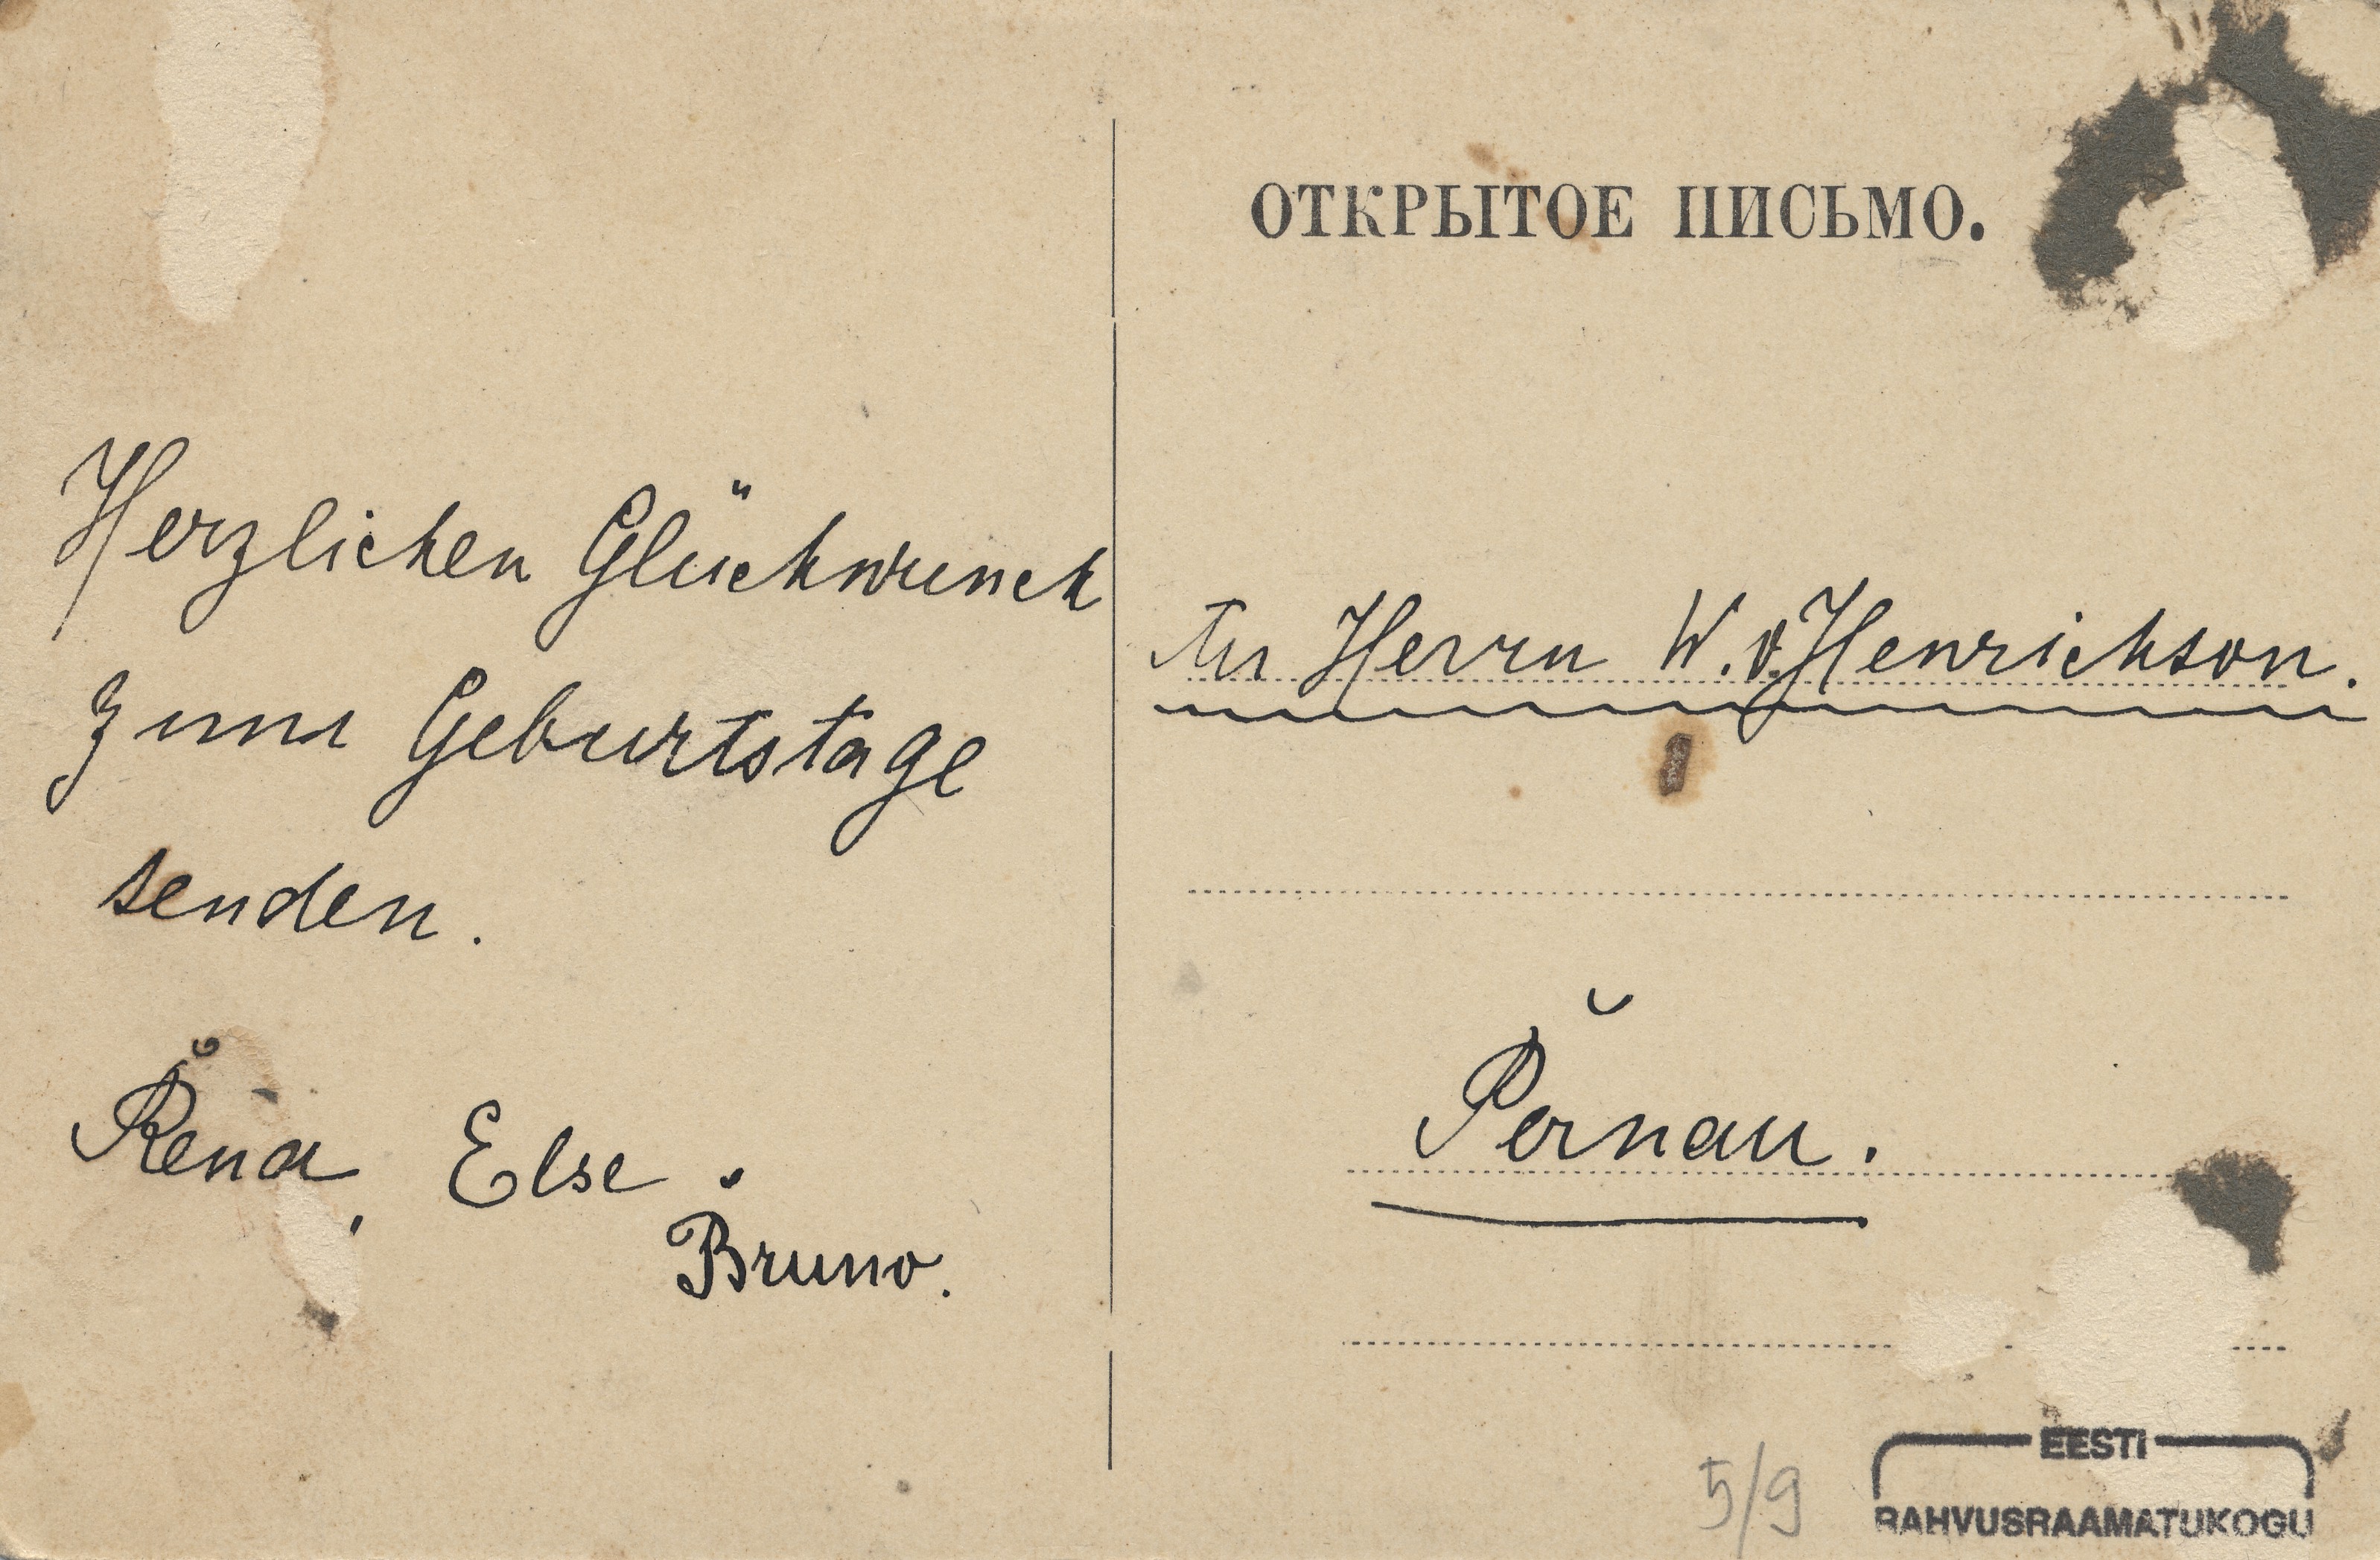 Herzlichen Glückwunch
zum Geburtstage
senden.
Rena, Else.
Bruno.
ОТКРЫТОЕ ПИСЬМО.
An Herrn W. v. Henrichson.
Pernau.
5/9
EESTI
RAHVUSRAAMATUKOGU